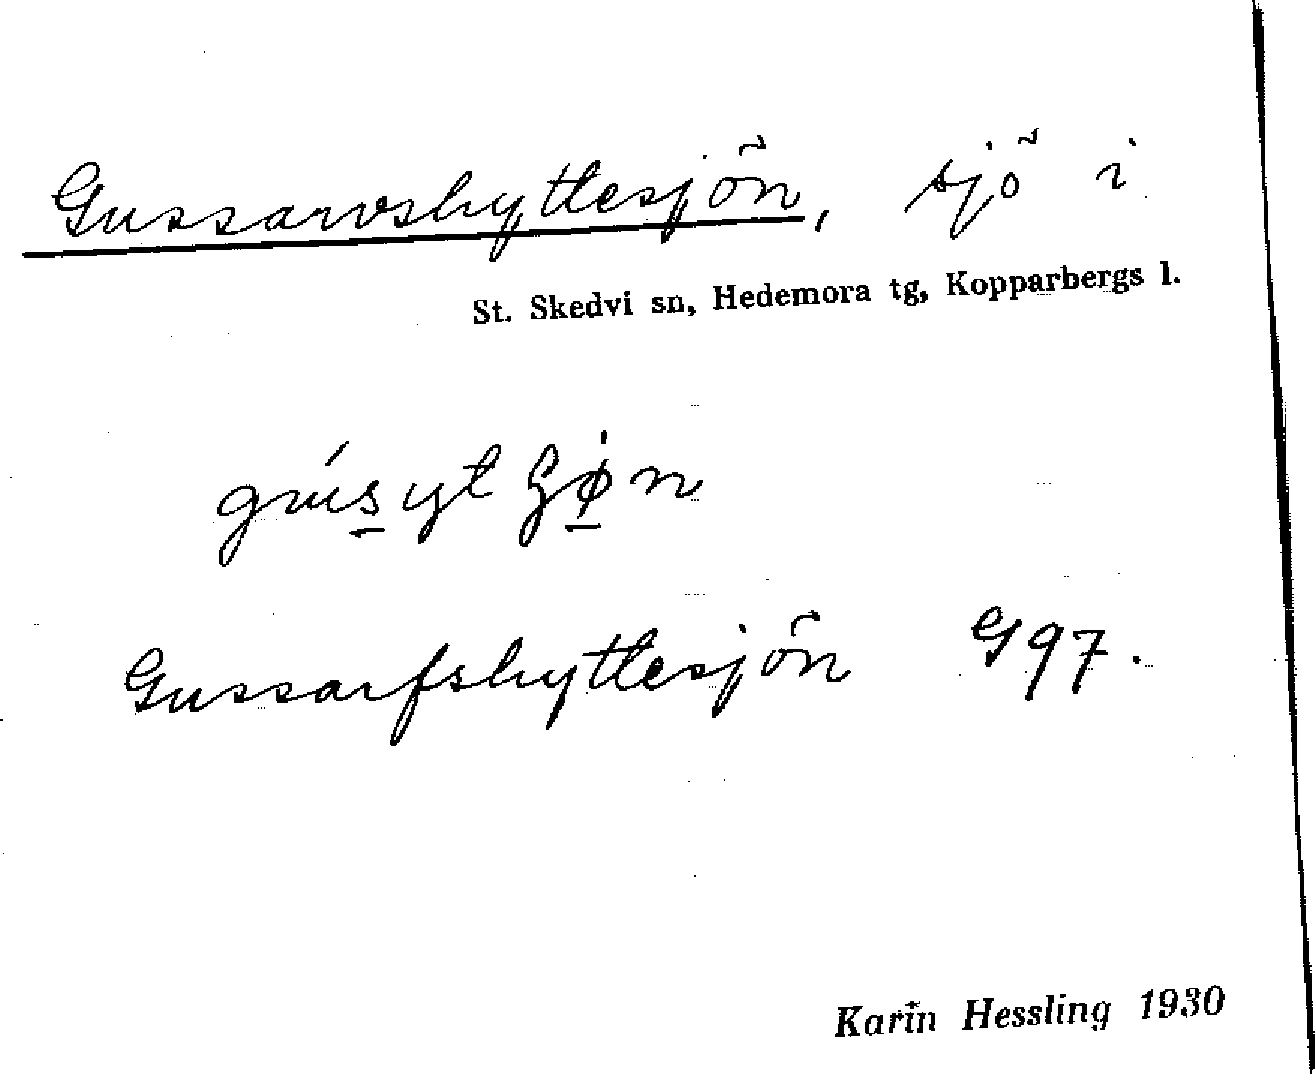 Gussarvshyttesjön, sjö i
St. Skedvi sn, Hedemora tg, Kopparbergs l.
Gussarfshyttesjön G97.
Karin Hessling 1930